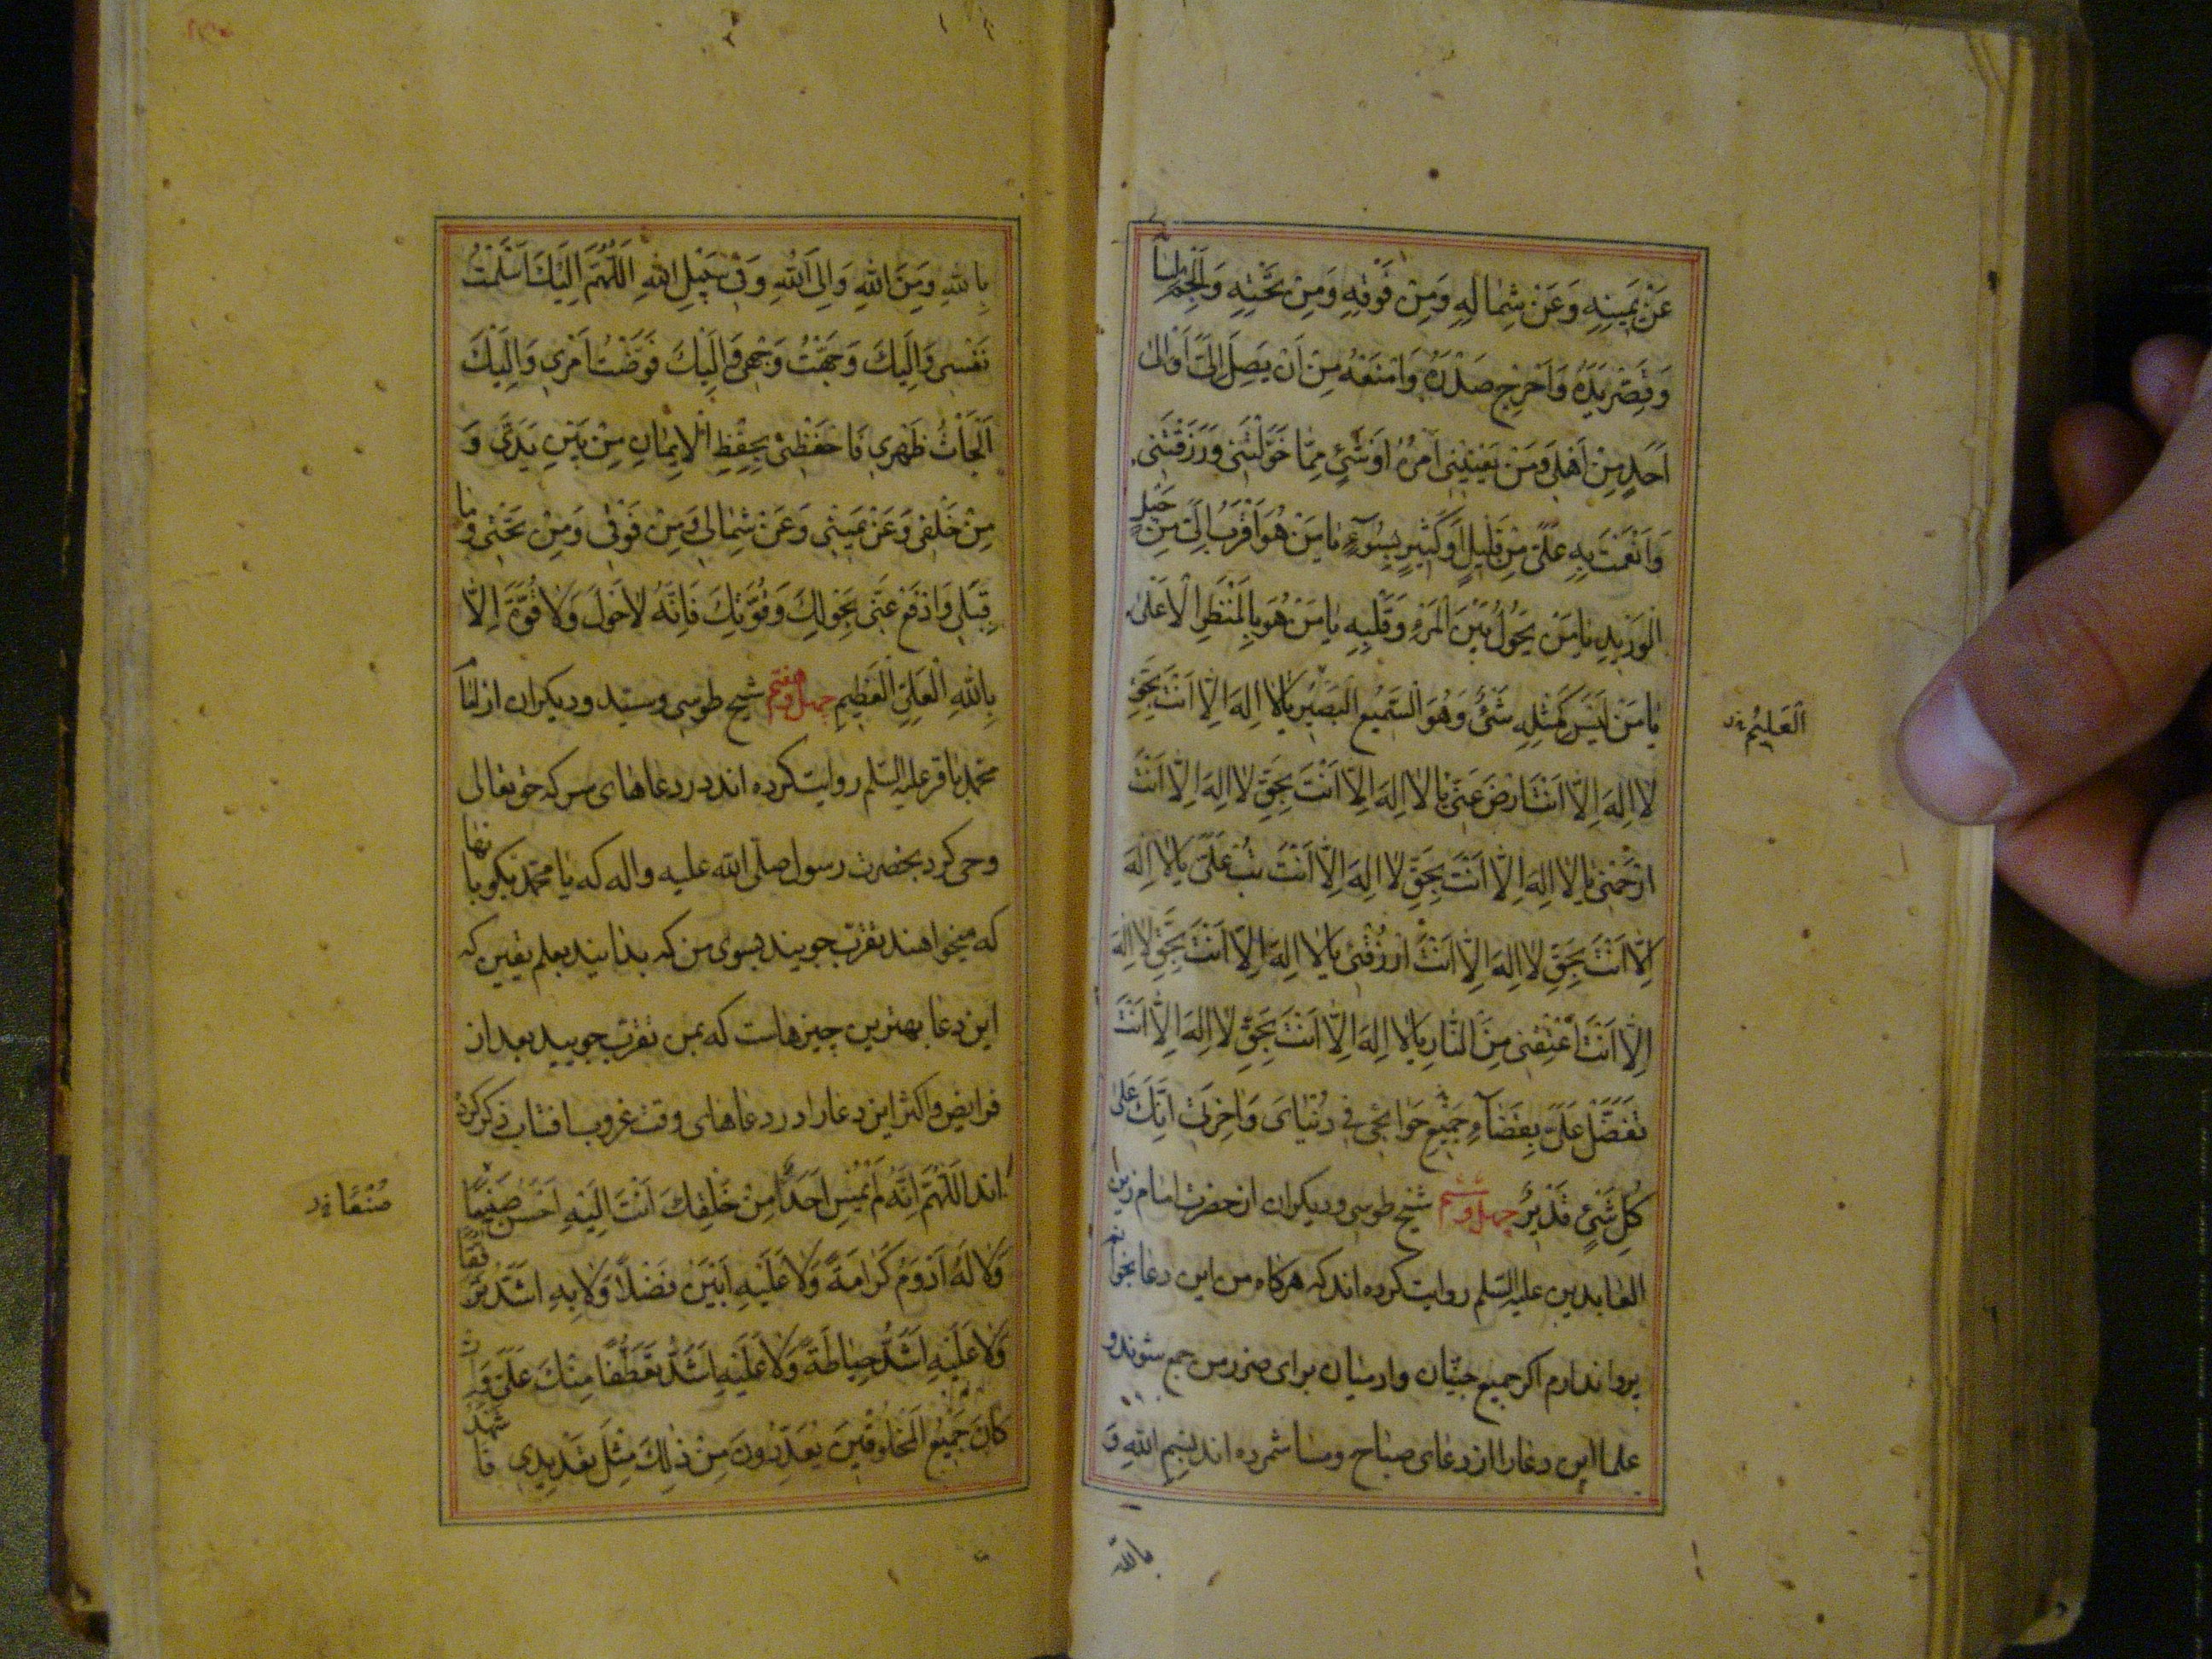 عَنْ يَمِينِهِ وَعَنْ شِمالِهِ وَمِنْ فَوْقِهِ وَمِنْ تَحْتِهِ وَاَلْجِمْ لِسانَهُ
وَقَصِّرْ يَدَهُ وَاَحْرِجْ صَدْرَهُ وَامْنَعْهُ مِنْ اَنْ يَصِلَ اِلَيَّ اَوْ اِلىٰ
اَحَدٍ مِنْ اَهْلي وَمَنْ يَعْنِيْنِي اَمْرُهُ اَوْ شَئٍ مِمّا خَوَّلْتَنِي وَرَزَقْتَنِي
وَاَنْعَمْتَ بِهِ عَلَيَّ مِنْ قَلِيلٍ اَوْ كَثِيرٍ بِسُوۤءٍ يا مَنْ هُوَ اَقْرَبُ اِلَيَّ مِنْ حَبْلِ
الْوَرِيدِ يا مَنْ يَحُولُ بَيْنَ الْمَرْءِ وَقَلْبِهِ يا مَنْ هُوَ بِالْمَنْظَرِ الْاَعْلىٰ
يا مَنْ لَيْسَ كَمِثْلِهِ شَئٌ وَهُوَ السَّمِيعُ الْبَصِيرُ يا لا اِلهَ اِلّا اَنْتَ بِحَقِّ
العَلِيمُ
لا اِلهَ اِلّا اَنْتَ ارْضَ عَنّي يا لا اِلهَ اِلّا اَنْتَ بِحَقِّ لا اِلهَ اِلّا اَنْتَ
ارْحَمْنِي يا لا اِلهَ اِلّا اَنْتَ بِحَقِّ لا اِلهَ اِلّا اَنْتَ تُبْ عَلَيَّ يا لا اِلهَ
اِلّا اَنْتَ بِحَقِّ لا اِلهَ اِلّا اَنْتَ ارْزُقْنِي يا لا اِلهَ اِلّا اَنْتَ بِحَقِّ لا اِلهَ
اِلّا اَنْتَ اَعْتِقْنِي مِنَ النّارِ يا لا اِلهَ اِلّا اَنْتَ بِحَقِّ لا اِلهَ اِلّا اَنْتَ
تَفَضَّلْ عَلَيَّ بِقَضاۤءِ جَمِيعِ حَوائِجي في دُنْيايَ وَاخِرَتي اِنَّكَ عَلىٰ
كُلِّ شَئٍ قَدِيرٌ چهل وششم شيخ طوسى و ديكران از حضرت امام زين
العابدين عليه السّلم روايت كرده اند كه هركاه من اين دعا بخوانم
پروا ندارم اكر جميع جنّيان وادميان براى ضرر من جمع شوند و
علما اين دعا را از دعاى صباح ومسا شمرده اند بِسْمِ اللهِ وَ
بالله
بِاللهِ وَمِنَ اللهِ وَاِلَى اللهِ وَفي سَبِيلِ اللهِ اَللّهُمَّ اِلَيْكَ اَسْلَمْتُ
نَفْسي وَاِلَيْكَ وَجَّهْتُ وَجْهي وَاِلَيْكَ فَوَّضْتُ اَمْري وَاِلَيْكَ
اَلْجَأْتُ ظَهْري فَاحْفَظْني بِحِفْظِ الْاِيمانِ مِنْ بَيْنِ يَدَيَّ وَ
مِنْ خَلْفي وَعَنْ يَميني وَعَنْ شِمالي وَمِنْ فَوْقي وَمِنْ تَحْتي وَما
قِبَلي وَادْفَعْ عَنّي بِحَوْلِكَ وَقُوَّتِكَ فَاِنَّهُ لا حَوْلَ وَلا قُوَّةَ اِلّا
بِاللهِ الْعَلِيِّ الْعَظِيمِ چهل وهفتم شيخ طوسى وسيّد و ديكران از امام
محمّد باقر عليه السّلم روايت كرده اند در دعاهاى سر كه حق تعالى
وحى كرد بحضرت رسول صلّى الله عليه واله كه يا محمّد بكو بانها
كه ميخواهند تقرّب جويند بسوى من كه بدانيد بعلم يقين كه
اين دعا بهترين چيزهاست كه بمن تقرّب جوييد بعد از
فرايض و اكثر اين دعا را در دعاهاى وقت غروب افتاب ذكر كرده
اند اَللّهُمَّ اِنَّهُ لَمْ يُمْسِ اَحَدٌ مِنْ خَلْقِكَ اَنْتَ اِلَيْهِ اَحْسَنُ صَنِيعًا
صُنْعًا
وَلا لَهُ اَدْوَمُ كَرامَةً وَلا عَلَيْهِ اَبْيَنُ فَضْلًا وَلا بِهِ اَشَدُّ تَرَفُّقًا
وَلا عَلَيْهِ اَشَدُّ حِياطَةً وَلا عَلَيْهِ اَشَدُّ تَعَطُّفًا مِنْكَ عَلَيَّ وَاِنْ
كانَ جَمِيعُ الْمَخْلُوقِينَ يُعَدِّدُونَ مِنْ ذلِكَ مِثْلَ تَعْدِيدي فَاشْهَدْ